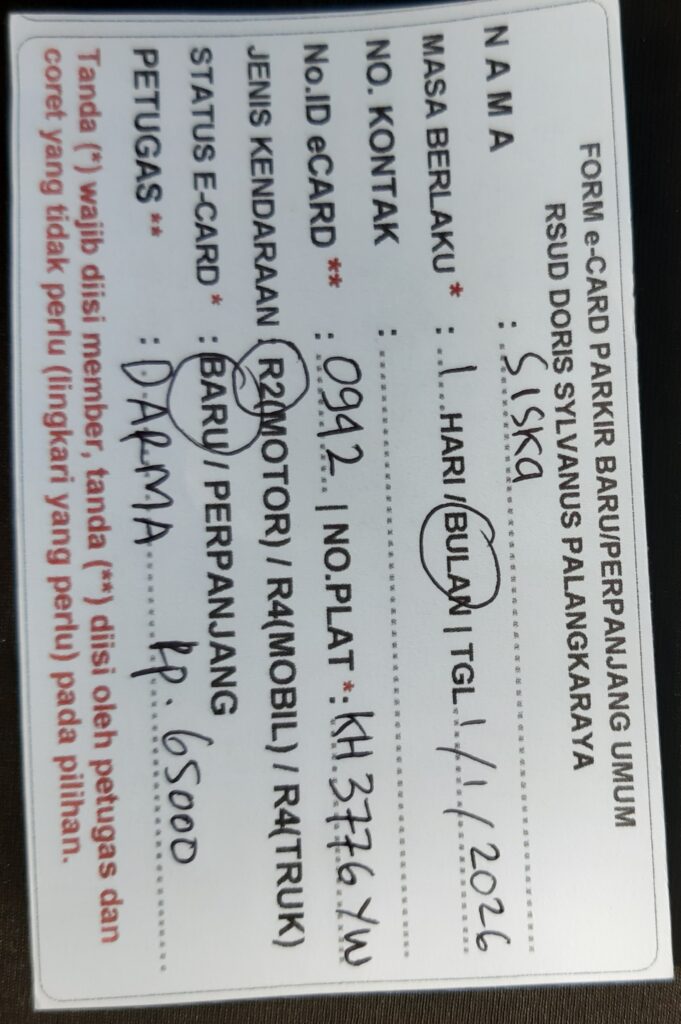 FORM e-CARD PARKIR BARU/PERPANJANG UMUM
RSUD DORIS SYLVANUS PALANGKARAYA
NAMA : SISKA
MASA BERLAKU * : 1 HARI / BULAN | TGL 1 / 1 / 2026
NO. KONTAK :
No.ID eCARD ** : 0942 | NO.PLAT *: KH 3776 YW
JENIS KENDARAAN : R2(MOTOR) / R4(MOBIL) / R4(TRUK)
STATUS E-CARD * : BARU / PERPANJANG
PETUGAS ** : DARMA Rp. 65000
Tanda (*) wajib diisi member, tanda (**) diisi oleh petugas dan
coret yang tidak perlu (lingkari yang perlu) pada pilihan.